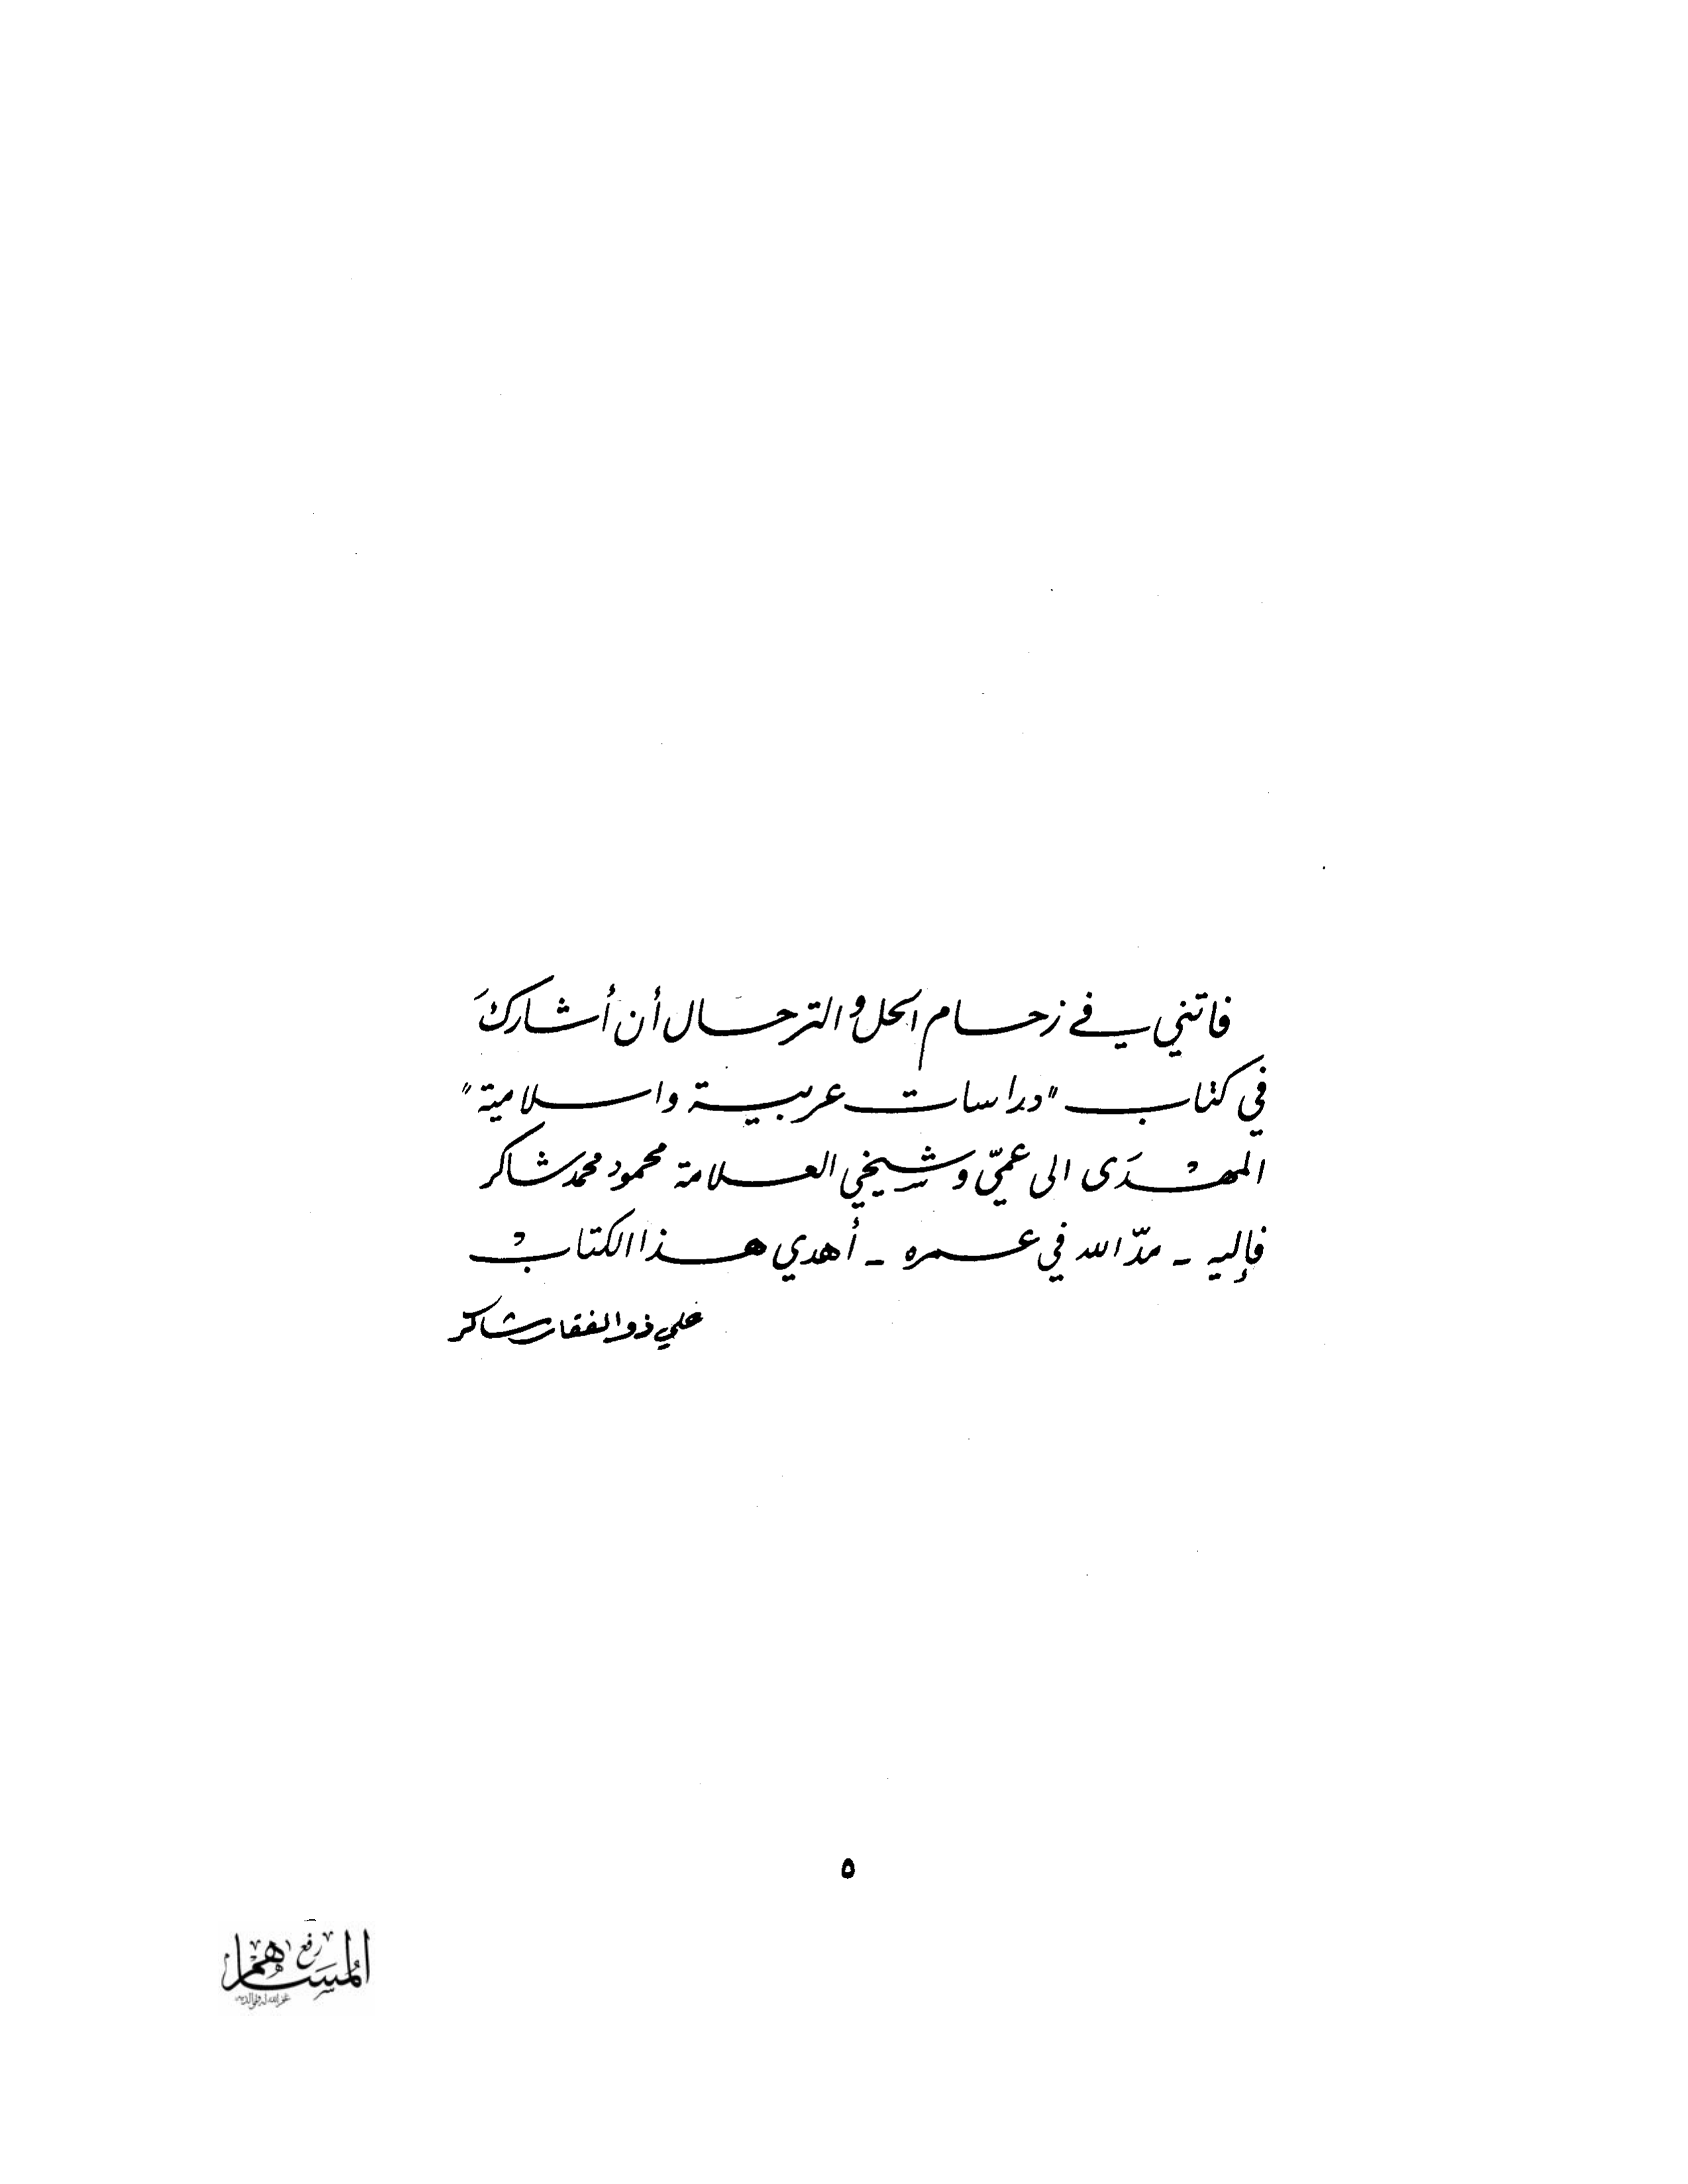 فاتني في زحام الحل والترحال أن أشاركَ
في كتاب "دراسات عربية واسلامية"
المهْدَى الى عميّ وشيخي العلامة محمود محمد شاكر
فإليه - مدّ الله في عمره - أهدي هذا الكتابْ
علي ذو الفقار شاكر
٥
رفع
المساهم
غفر الله له ولوالديه